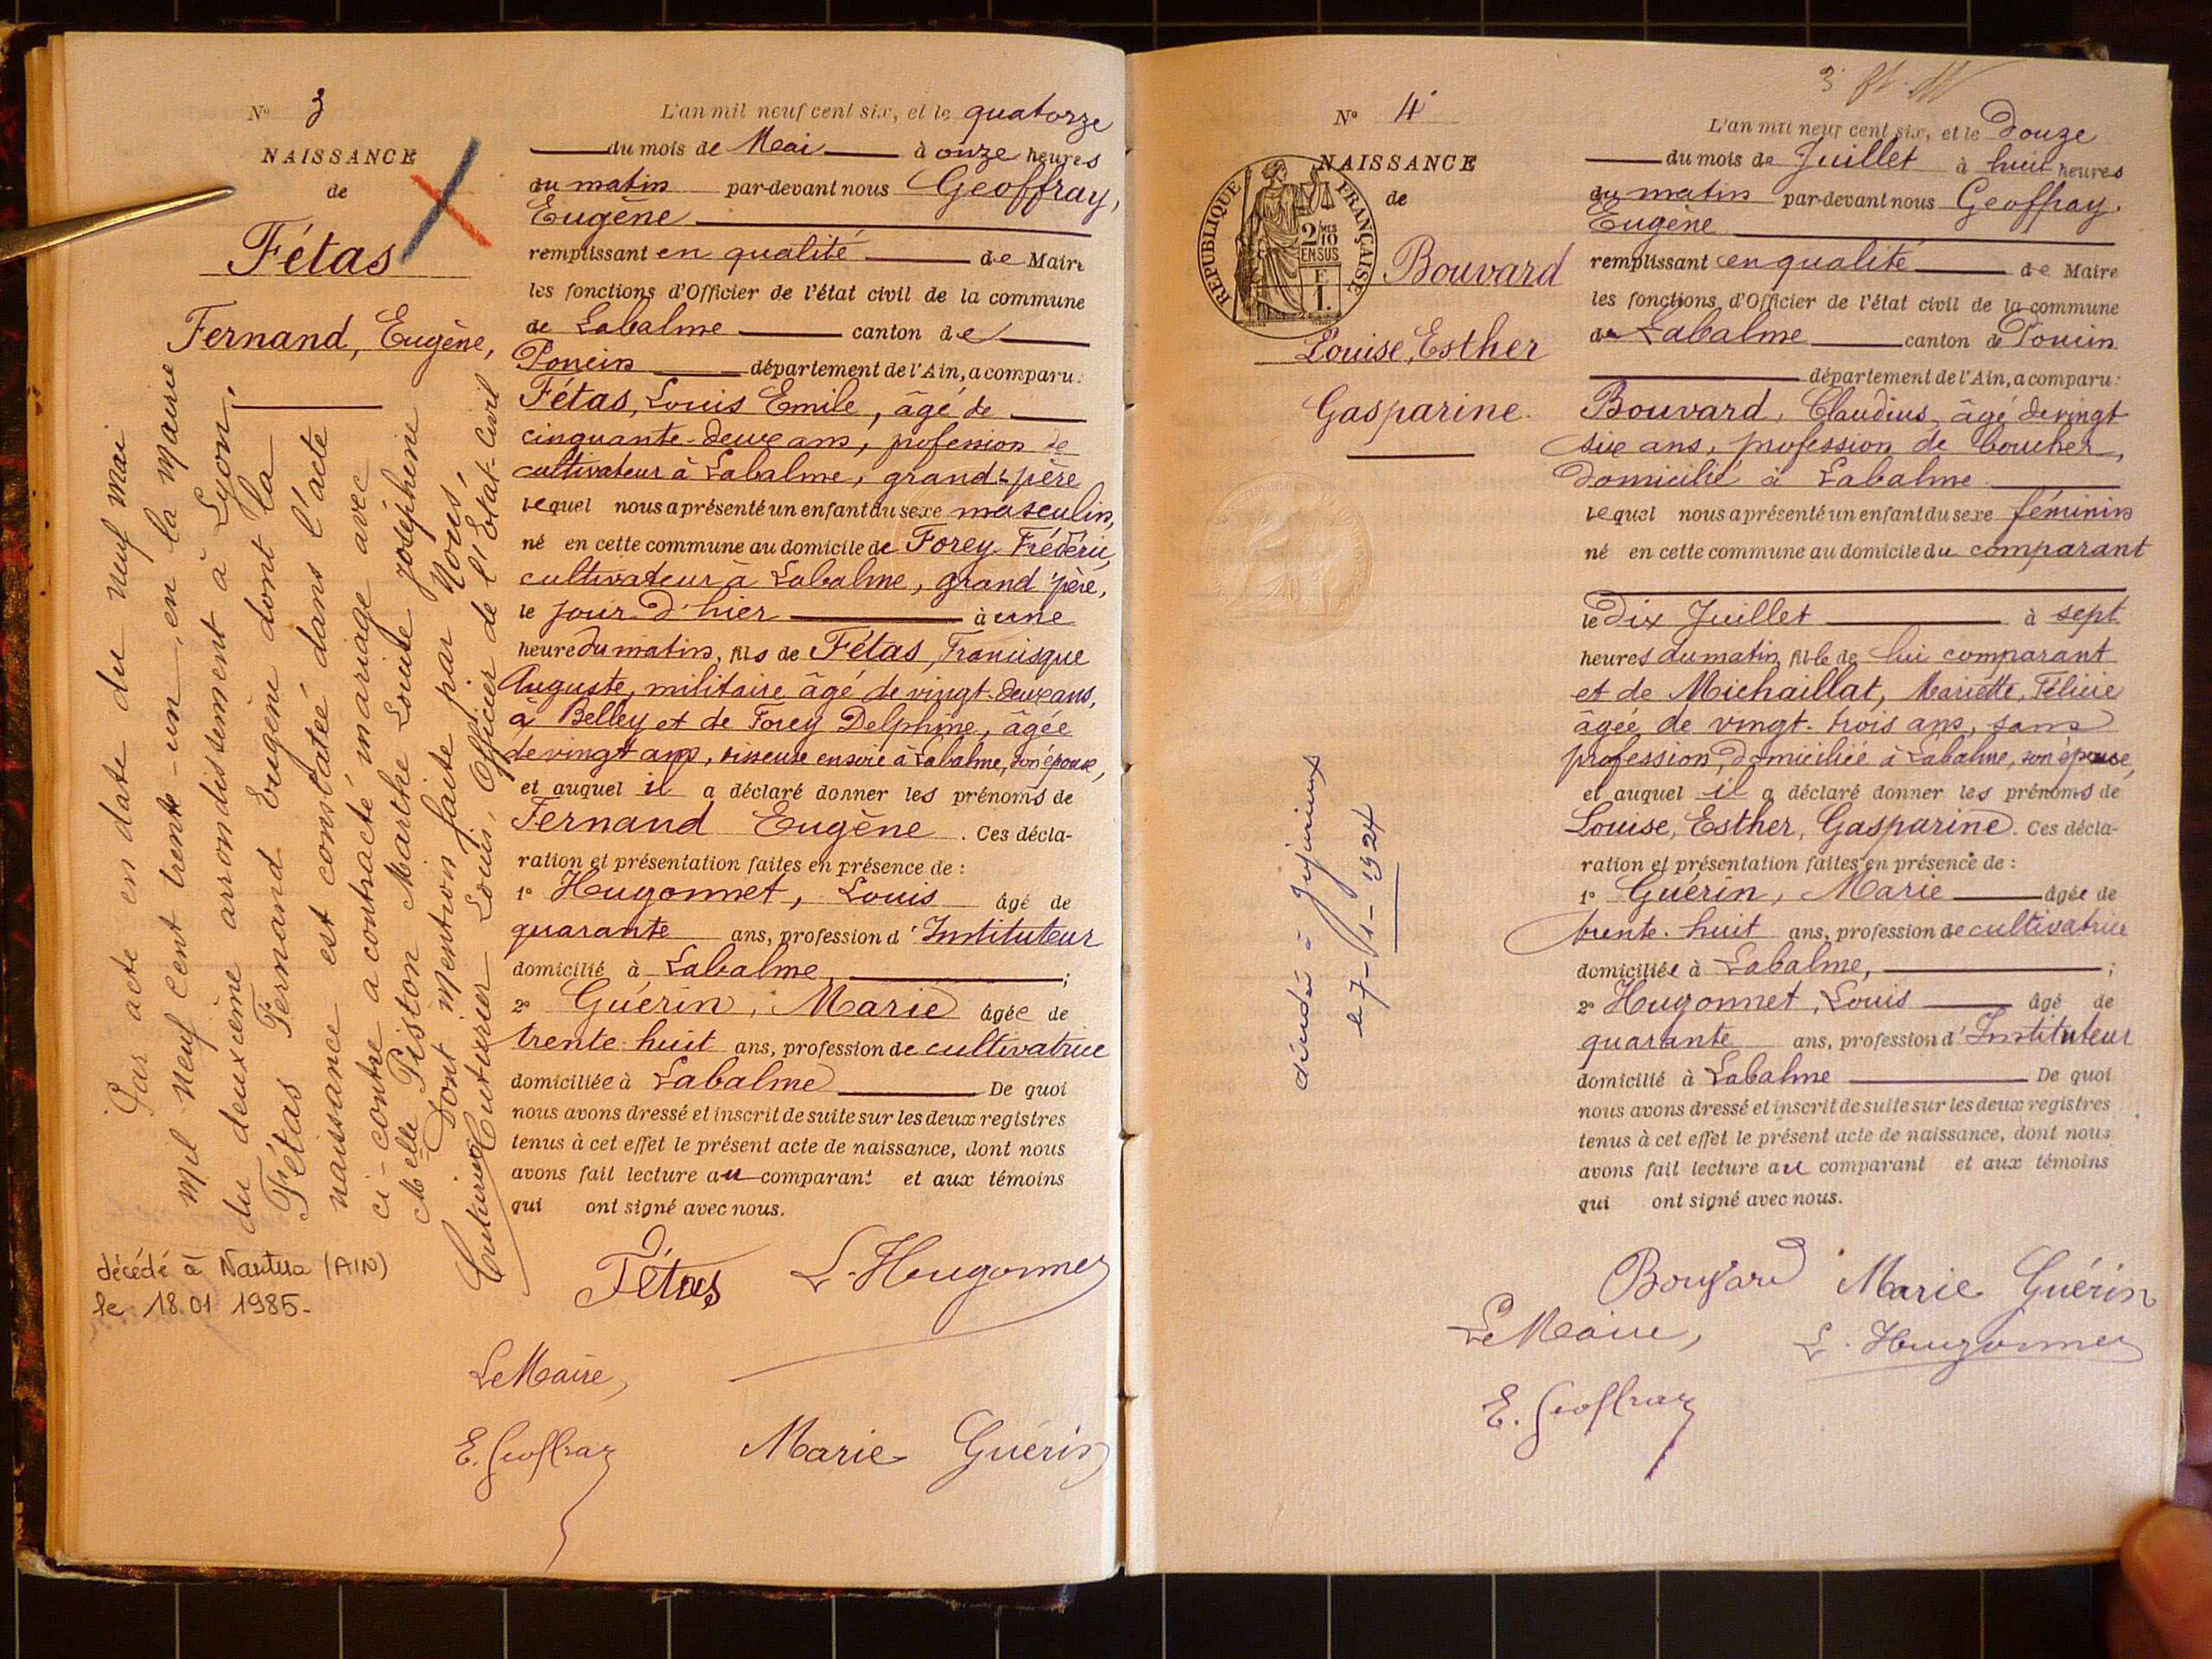 N° 3
NAISSANCE
de
Fétas
Fernand, Eugène,
Par acte en date du neuf mai
mil neuf cent trente-un, en la Mairie
du deuxième arrondissement à Lyon,
Fétas Fernand Eugène dont la
naissance est constatée dans l'acte
ci-contre a contracté mariage avec
Melle Piston Marthe Louise Joséphine
Dont mention faite par Nous,
Couturier Louis, Officier de l'Etat-Civil
décédé à Nantua (AIN)
le 18.01 1985.
L'an mil neuf cent six, et le quatorze
du mois de Mai à onze heures
du matin par-devant nous Geoffray,
Eugène
remplissant en qualité de Maire
les fonctions d'Officier de l'état civil de la commune
de Labalme canton de
Poncin département de l'Ain, a comparu:
Fétas, Louis Emile, âgé de
cinquante-deux ans, profession de
cultivateur à Labalme, grand-père
lequel nous a présenté un enfant du sexe masculin,
né en cette commune au domicile de Forey Frédéric,
cultivateur à Labalme, grand père,
le jour d'hier à une
heure du matin, fils de Fétas, Francisque
Auguste, militaire âgé de vingt-deux ans,
à Belley et de Forey Delphine, âgée
de vingt ans, en soie à Labalme, son épouse,
et auquel il a déclaré donner les prénoms de
Fernand Eugène. Ces décla-
ration et présentation faites en présence de :
1° Hugonnet, Louis âgé de
quarante ans, profession d'Instituteur
domicilié à Labalme, ;
2° Guérin, Marie âgée de
trente-huit ans, profession de cultivatrice
domiciliée à Labalme De quoi
nous avons dressé et inscrit de suite sur les deux registres
tenus à cet effet le présent acte de naissance, dont nous
avons fait lecture au comparant et aux témoins
qui ont signé avec nous.
Fétas L. Hugonnet
Le Maire,
E. Geoffray Marie Guérin
N° 4
NAISSANCE
de
REPUBLIQUE FRANÇAISE
2/10MES
EN SUS
E
1.
Bouvard
Louise, Esther
Gasparine.
décédée à Jujurieux
le 7-1-1924
L'an mil neuf cent six, et le Douze
du mois de Juillet à huit heures
du matin par-devant nous Geoffray,
Eugène
remplissant en qualité de Maire
les fonctions d'Officier de l'état civil de la commune
de Labalme canton de Poncin
département de l'Ain, a comparu:
Bouvard, Claudius âgé de vingt
six ans, profession de boucher,
domicilié à Labalme
lequel nous a présenté un enfant du sexe féminin
né en cette commune au domicile du comparant
le Dix Juillet à sept
heures du matin, fille de lui comparant
et de Michaillat, Mariette, Félicie
âgée de vingt-trois ans, sans
profession, domiciliée à Labalme, son épouse,
et auquel il a déclaré donner les prénoms de
Louise, Esther, Gasparine. Ces décla-
ration et présentation faites en présence de :
1° Guérin, Marie âgée de
trente-huit ans, profession de cultivatrice
domiciliée à Labalme, ;
2° Hugonnet, Louis âgé de
quarante ans, profession d'Instituteur
domicilié à Labalme De quoi
nous avons dressé et inscrit de suite sur les deux registres
tenus à cet effet le présent acte de naissance, dont nous
avons fait lecture au comparant et aux témoins
qui ont signé avec nous.
Bouvard Marie Guérin
Le Maire, L. Hugonnet
E. Geoffray